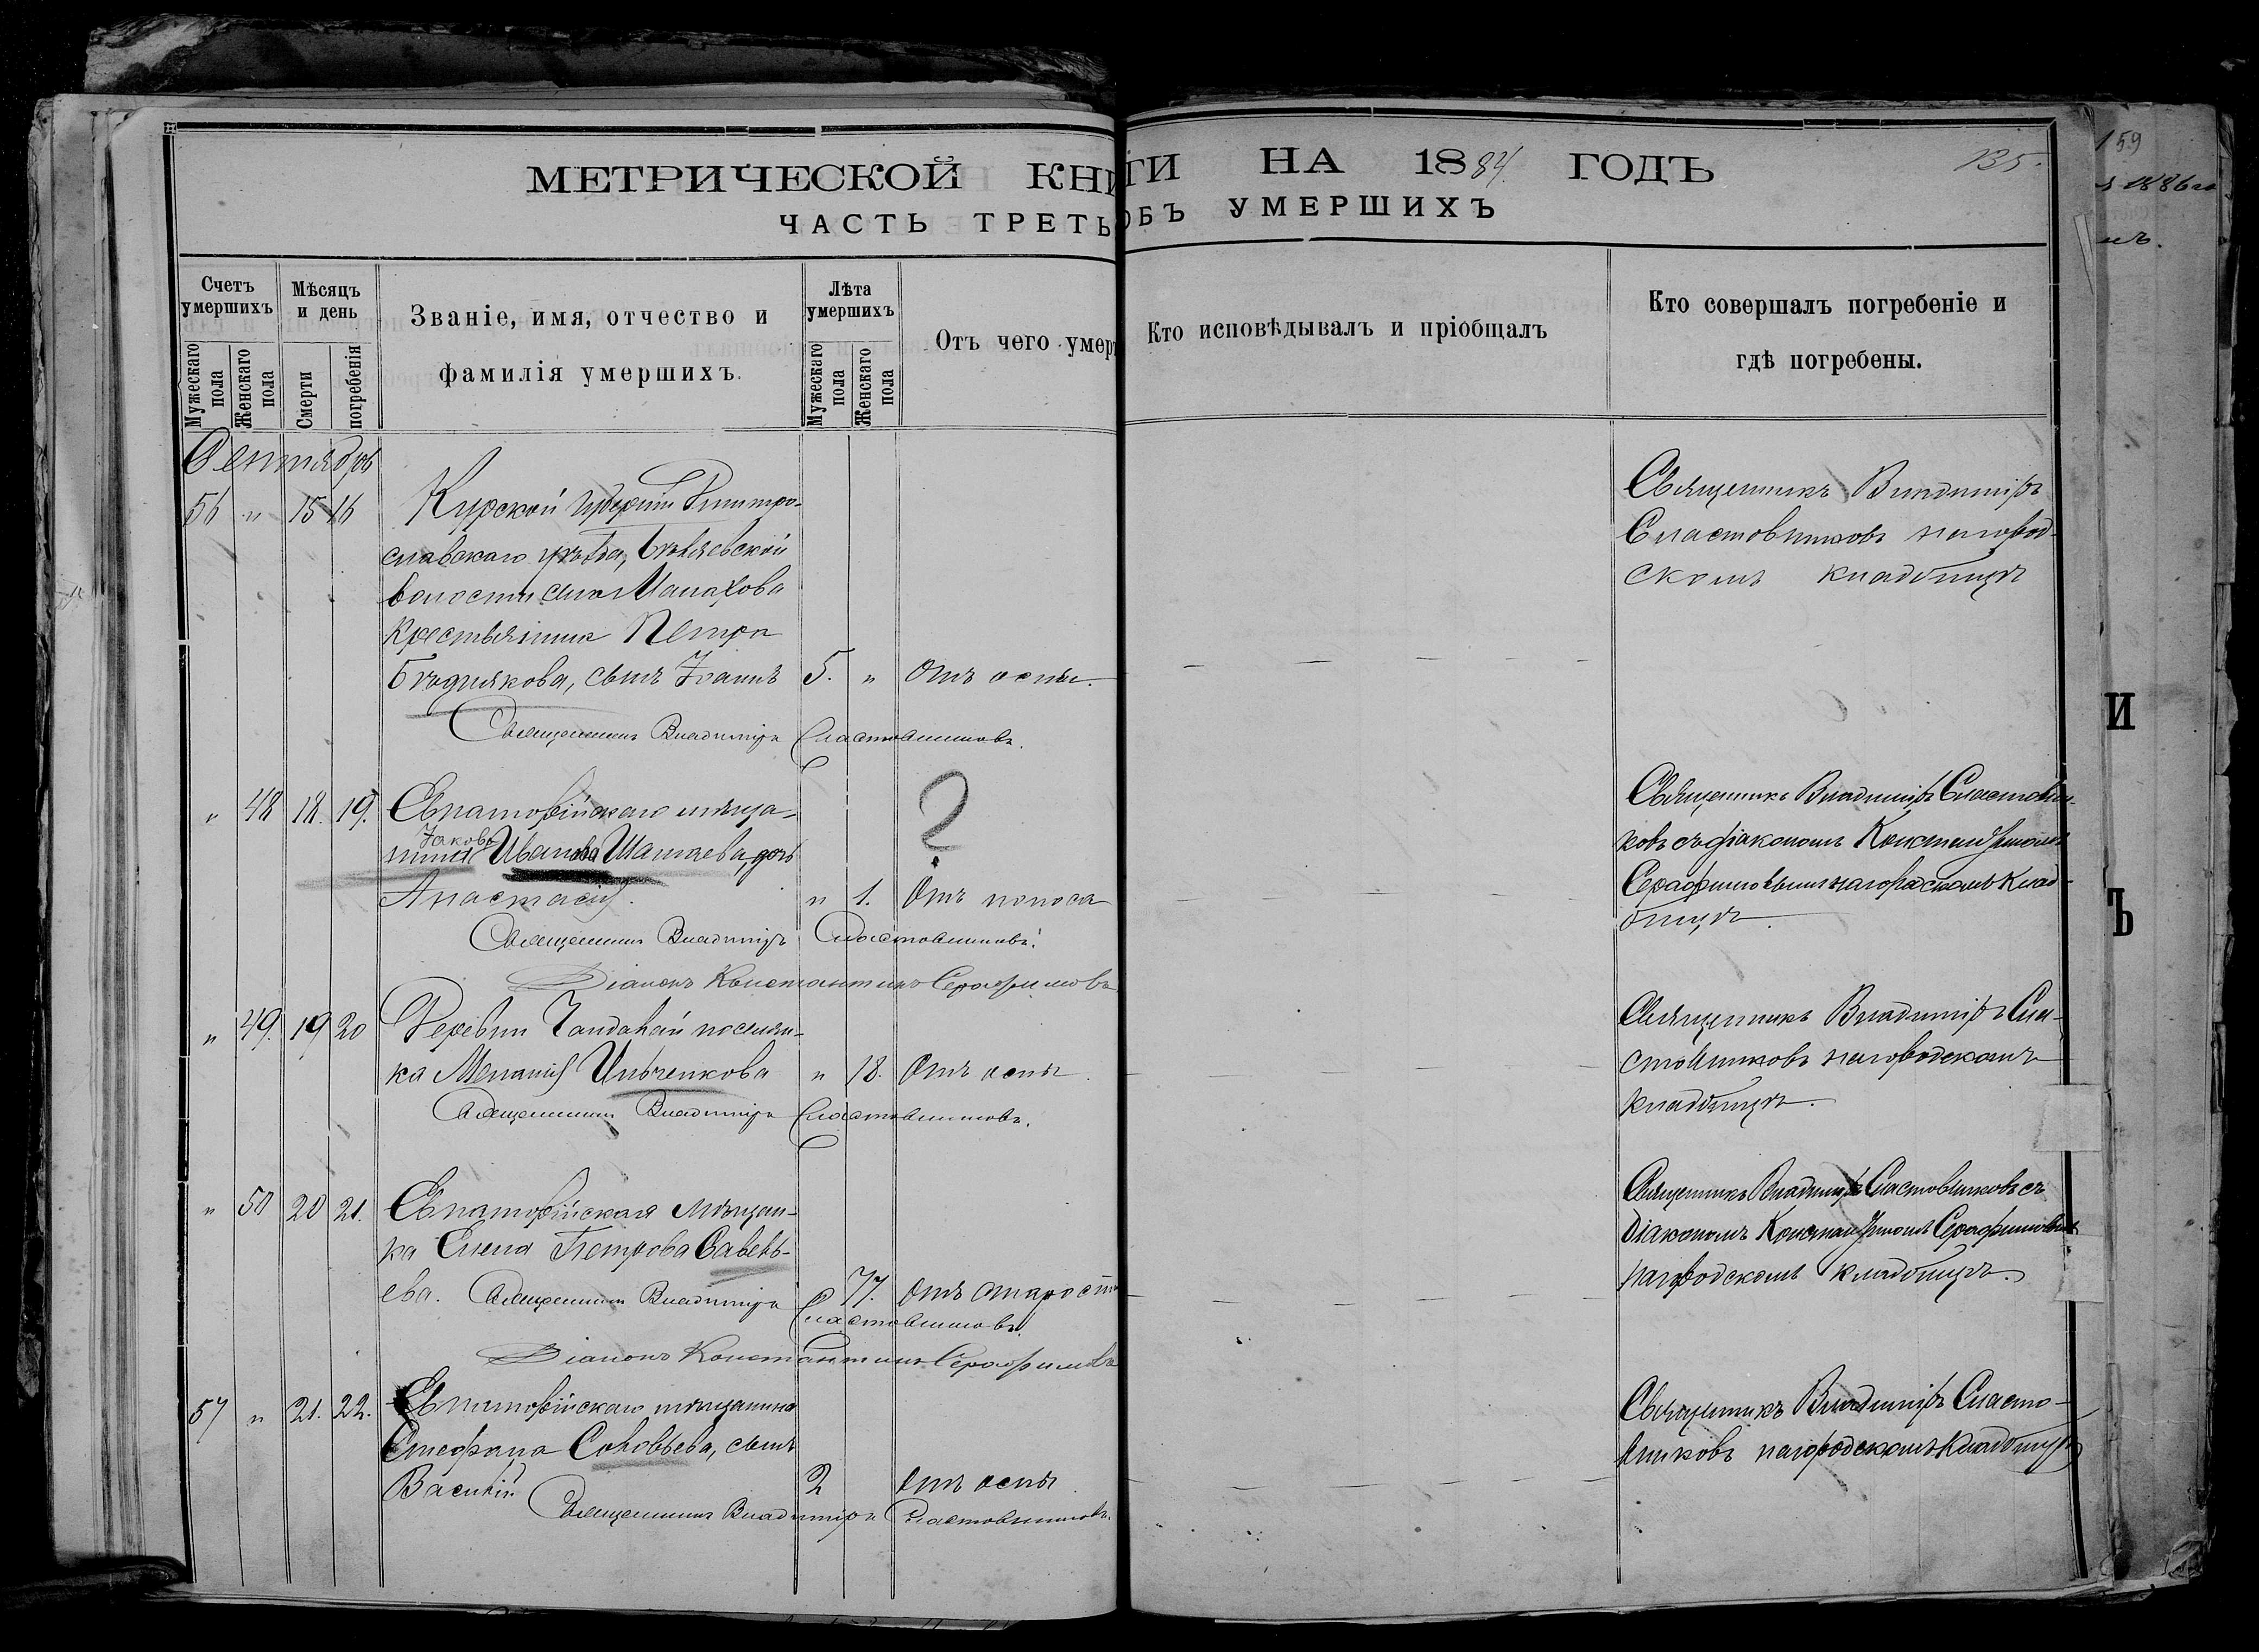 МЕТРИЧЕСКОЙ КНИГИ НА 1884 ГОДЪ
135.
159
ЧАСТЬ ТРЕТЬ ОБЪ УМЕРШИХЪ
Счетъ умершихъ
Мужескаго пола
Женскаго пола
Мѣсяцъ и день
Смерти
погребенія
Званіе, имя, отчество и
фамилія умершихъ.
Лѣта умершихъ
Мужескаго пола
Женскаго пола
Отъ чего умер
Кто исповѣдывалъ и пріобщалъ
Кто совершалъ погребеніе и
гдѣ погребены.
Сентябрь
56 " 15 16 Курской губерніи
славскаго уѣзда,
волости села Малахова
Крестьянина Петра
сынъ Іоаннъ 5. " Отъ оспы.
Священникъ Владиміръ Сластовниковъ.
Священникъ Владиміръ
Сластовниковъ на город-
скомъ кладбищѣ
" 48 18. 19. Евпаторійскаго мѣща-
Іакова
нина Иванова дочь
Анастасія. " 1. Отъ поноса
?
Священникъ Владиміръ Сластовниковъ.
Діаконъ Константинъ Серафимовъ
Священникъ Владиміръ Сластовни-
ковъ съ діакономъ Константиномъ
Серафимовымъ на городскомъ клад-
бищѣ.
" 49. 19 20 Деревни поселян-
ка Меланія Ивченкова " 18. Отъ оспы.
Священникъ Владиміръ Сластовниковъ.
Священникъ Владиміръ Сла-
стовниковъ на городскомъ
кладбищѣ.
" 50 20 21. Евпаторійская мѣщан-
ка Елена Петрова Савель-
ева. 77. отъ старости
Священникъ Владиміръ Сластовниковъ.
Діаконъ Константинъ Серафимовъ
Священникъ Владиміръ Сластовниковъ съ
діакономъ Константиномъ Серафимовымъ
на городскомъ кладбищѣ.
57 " 21. 22. Евпаторійскаго мѣщанина
Стефана Соловьева, сынъ
Василій 2 отъ оспы
Священникъ Владиміръ Сластовниковъ.
Священникъ Владиміръ Сласто-
вниковъ на городскомъ кладбищѣ
И
Ъ